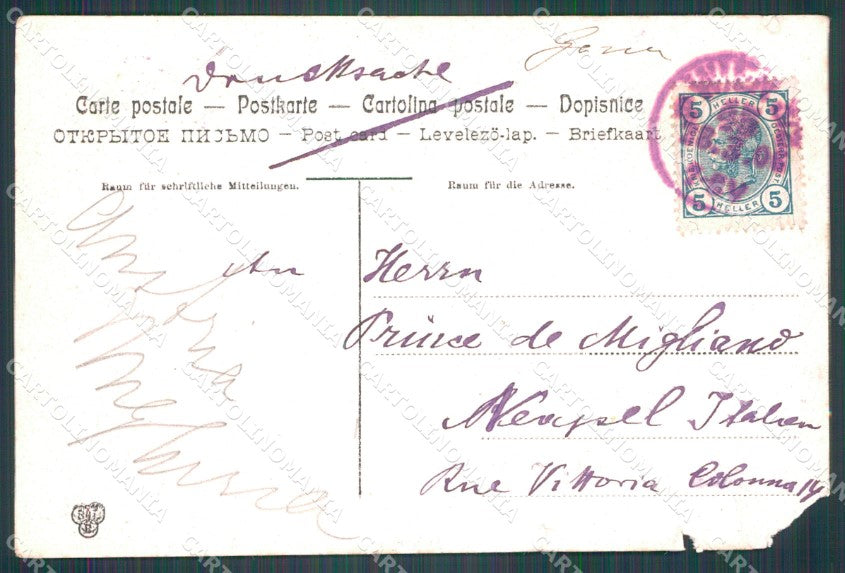 Drucksache
Carte postale — Postkarte — Cartolina postale — Dopisnice
ОТКРЫТОЕ ПИСЬМО — Post card — Levelező-lap. — Briefkaart
Raum für schriftliche Mitteilungen.
Raum für die Adresse.
5 HELLER 5
5 HELLER 5
An Herrn
Prince de Migliano
Neapel Italien
Rue Vittoria Colonna 14
Austria
Ungheria
CARTOLINOMANIA